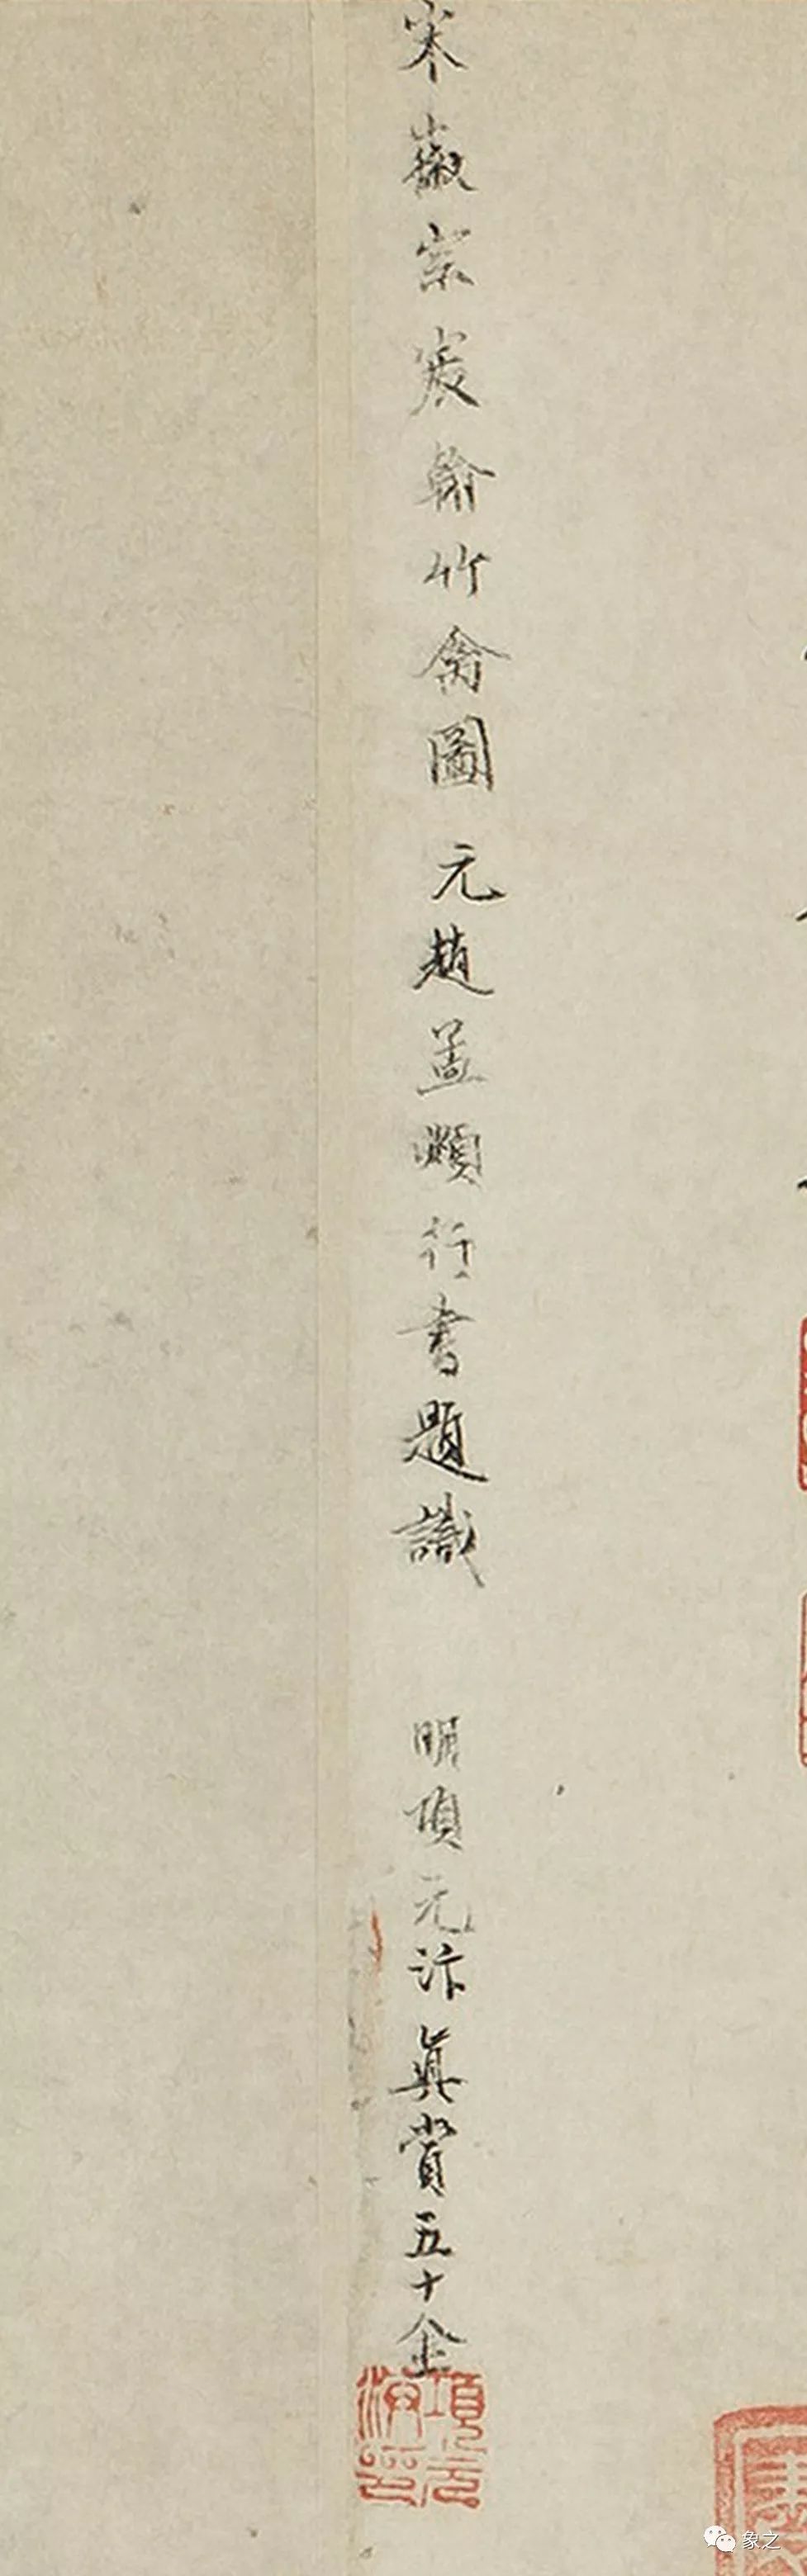 宋徽宗宸翰竹禽圖 元趙孟頫行書題識 明項元汴真賞五十金
項元汴印
象之